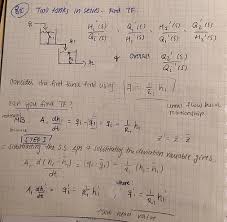 Two tanks in series - Find TF.
H₁'(s) / Qᵢ'(s) , Q₁'(s) / H₁'(s) , H₂'(s) / Q₁'(s) , Q₂'(s) / H₂'(s)
& overall Q₂'(s) / Qᵢ'(s)
Consider the first tank first using (q₁ = 1/R₁ h₁)
Can you find TF?
Linear flow head relationship
MB A₁ dh₁/dt = qᵢ - q₁ = qᵢ - 1/R₁ h₁
STEP 1
Subtracting the S.S. eqn & substituting the deviation variable gives
A₁ d(h₁ - h̄₁)/dt = (qᵢ - q̄ᵢ) - 1/R₁ (h₁ - h̄₁)
A₁ dh₁'/dt = qᵢ' - 1/R₁ h₁' where q₁' = 1/R₁ h₁'